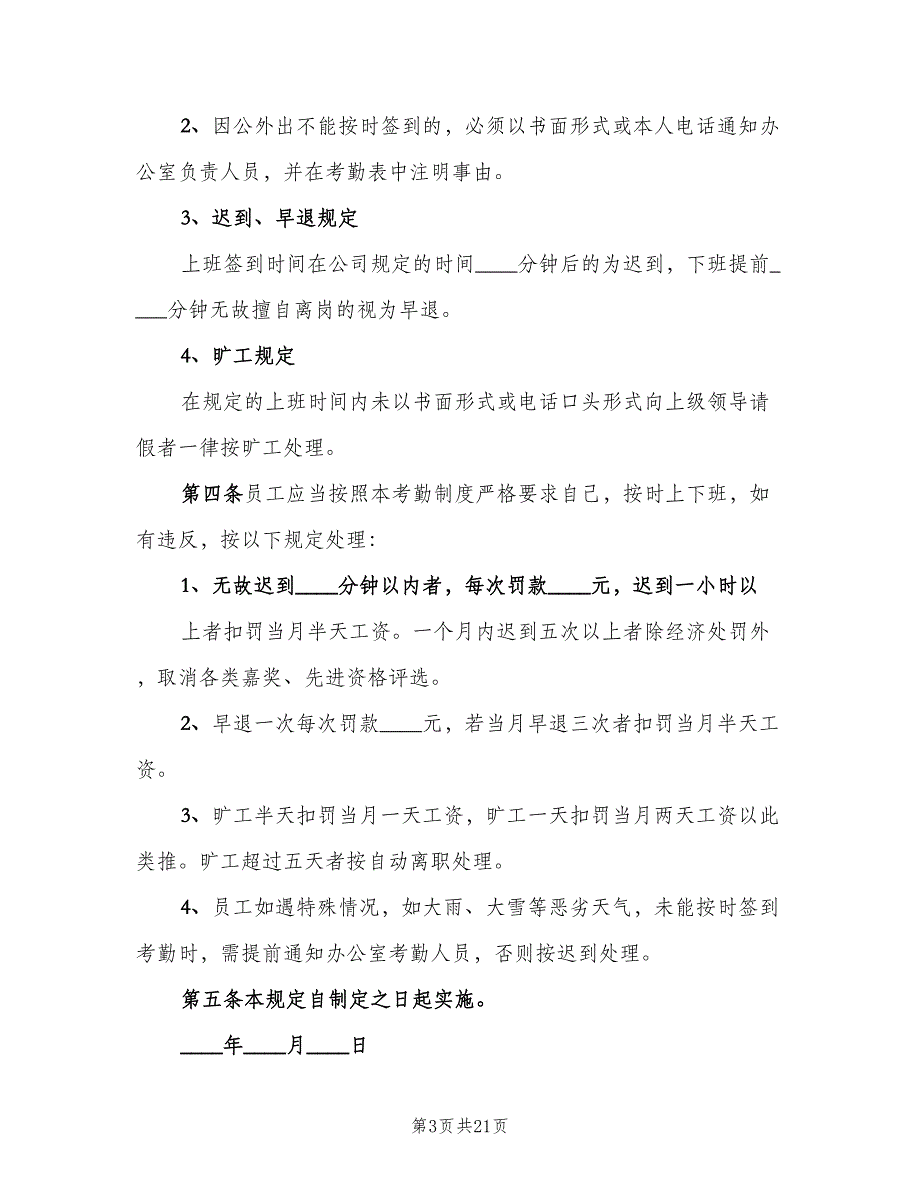 2、因公外出不能按时签到的，必须以书面形式或本人电话通知办
公室负责人员，并在考勤表中注明事由。
3、迟到、早退规定
上班签到时间在公司规定的时间____分钟后的为迟到，下班提前_
___分钟无故擅自离岗的视为早退。
4、旷工规定
在规定的上班时间内未以书面形式或电话口头形式向上级领导请
假者一律按旷工处理。
第四条员工应当按照本考勤制度严格要求自己，按时上下班，如
有违反，按以下规定处理：
1、无故迟到____分钟以内者，每次罚款____元，迟到一小时以
上者扣罚当月半天工资。一个月内迟到五次以上者除经济处罚外
，取消各类嘉奖、先进资格评选。
2、早退一次每次罚款____元，若当月早退三次者扣罚当月半天工
资。
3、旷工半天扣罚当月一天工资，旷工一天扣罚当月两天工资以此
类推。旷工超过五天者按自动离职处理。
4、员工如遇特殊情况，如大雨、大雪等恶劣天气，未能按时签到
考勤时，需提前通知办公室考勤人员，否则按迟到处理。
第五条本规定自制定之日起实施。
____年____月____日
第3页共21页